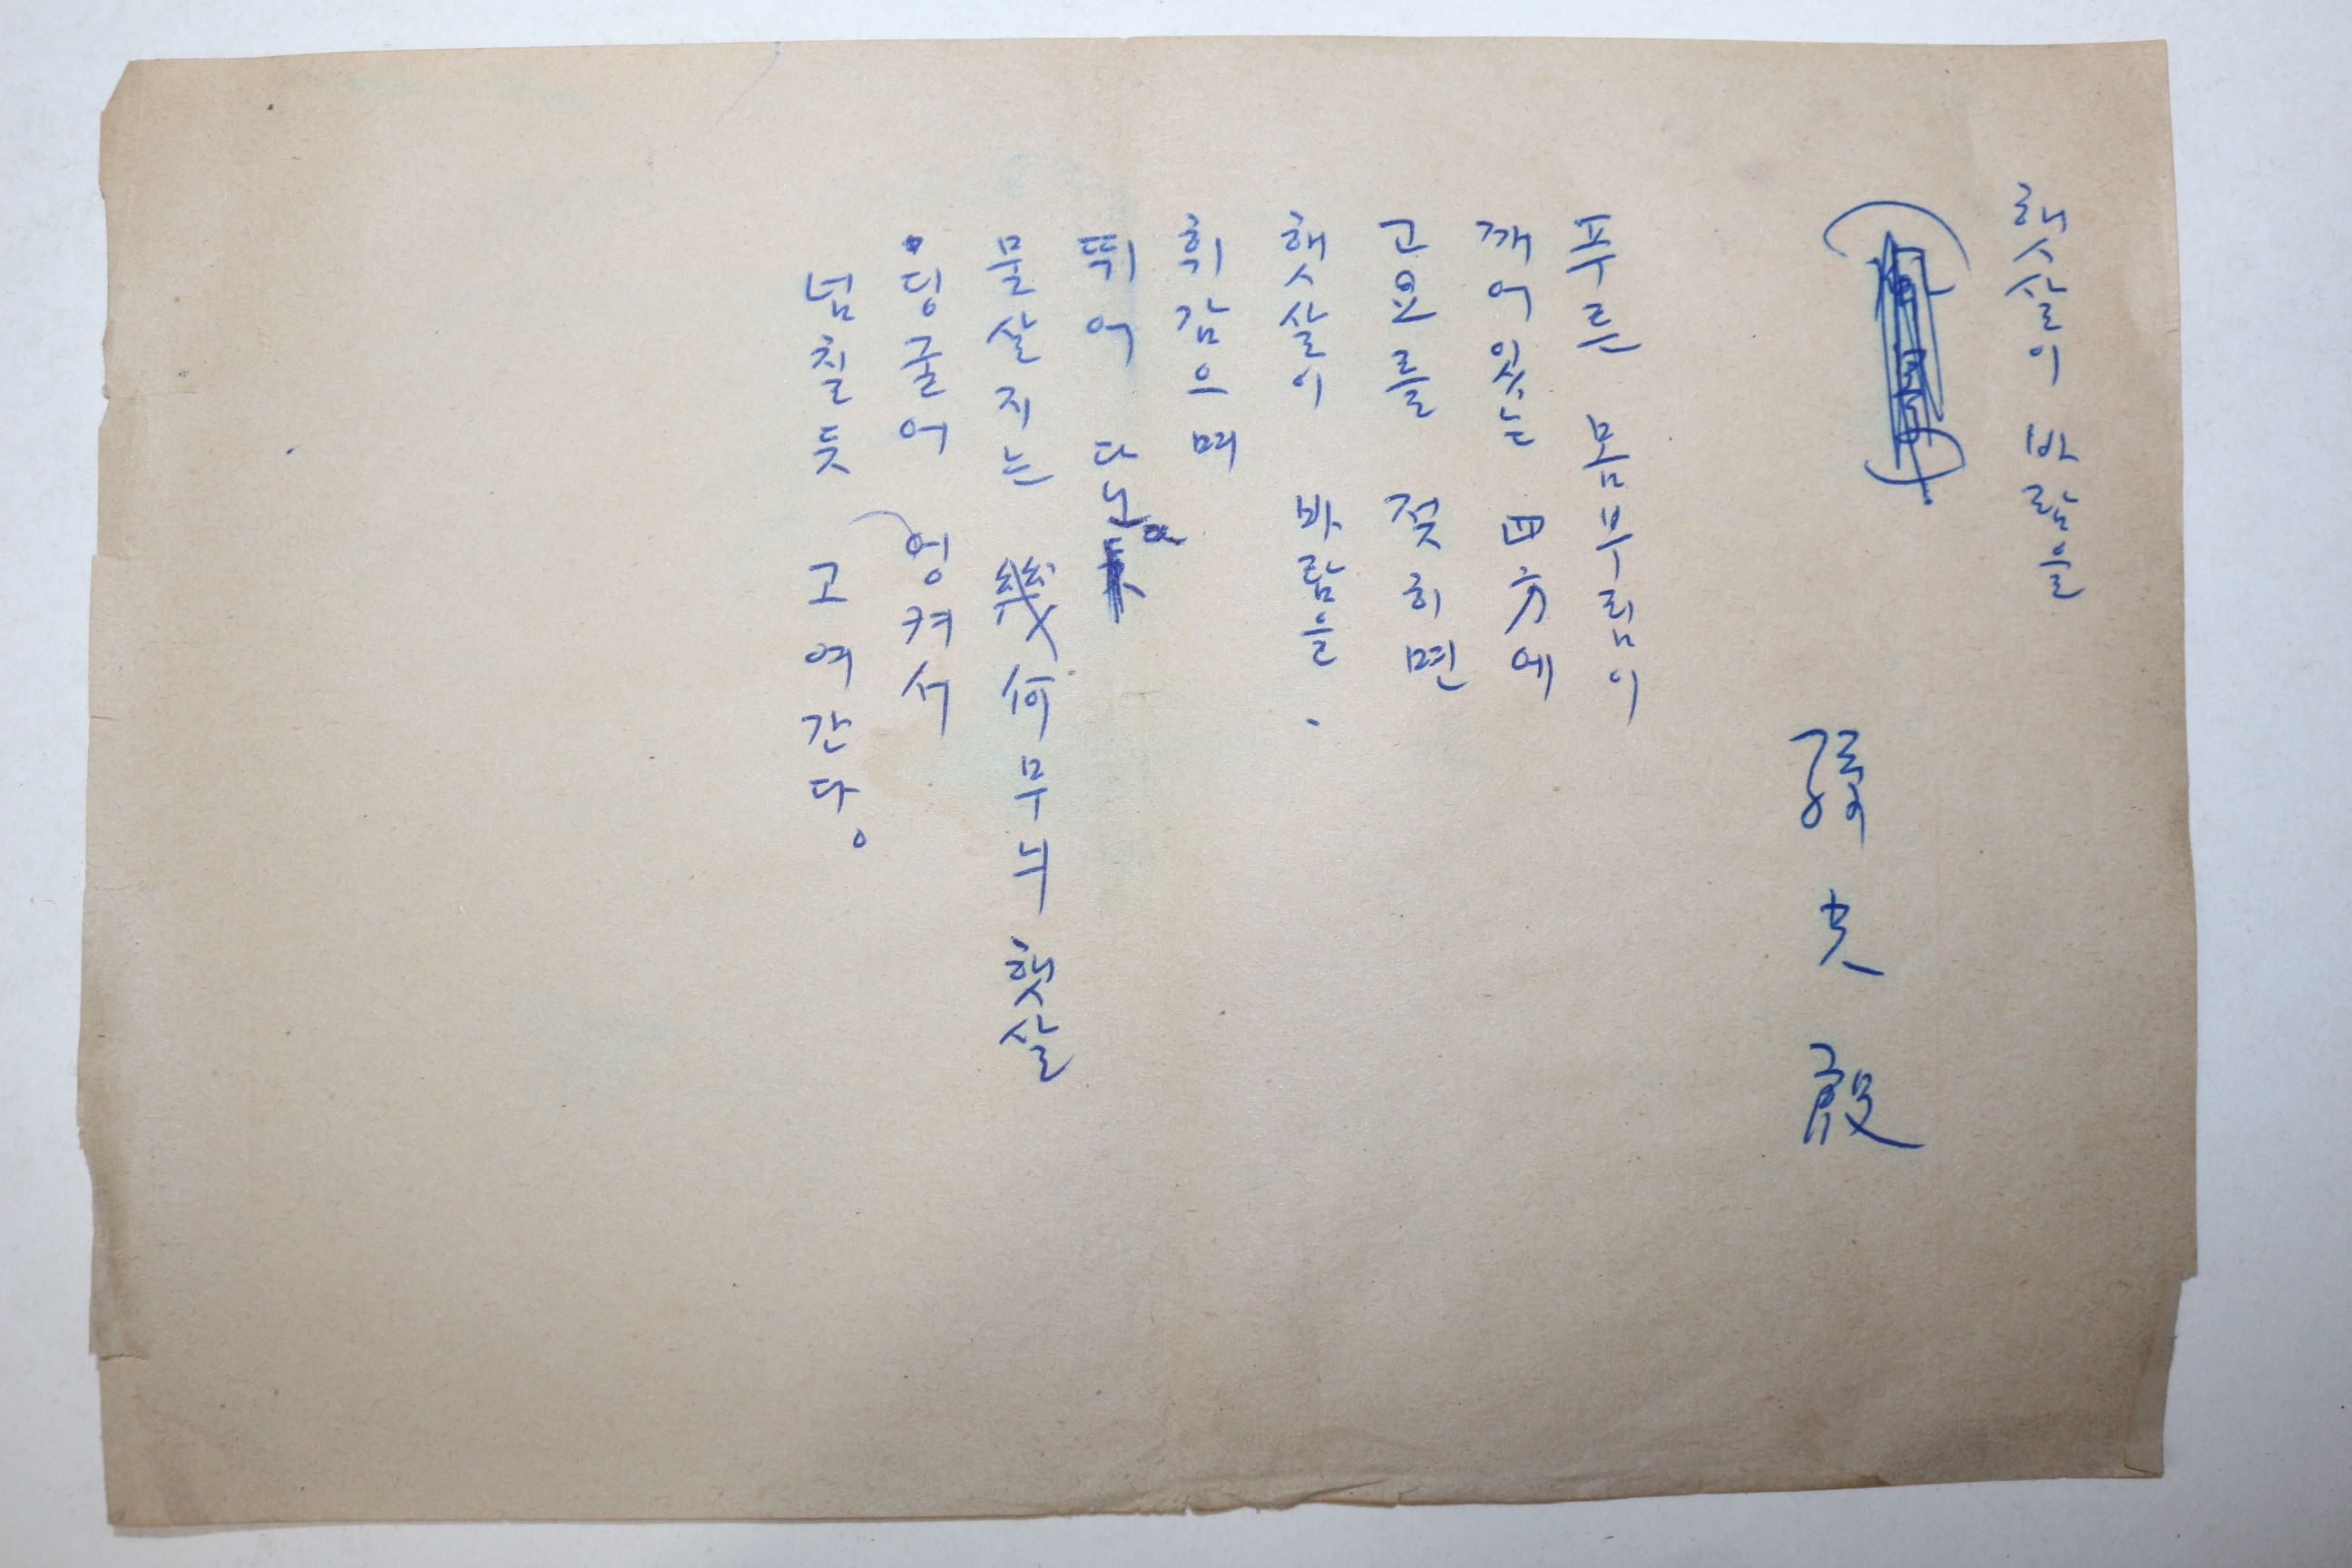 햇살이 바람을
孫光殷
푸른 몸부림이
깨어있는 四方에
고요를 젖히면
햇살이 바람을.
휘감으며
뛰어 다노
물살지는 幾何무늬 햇살
딩굴어 엉켜서
넘칠듯 고여간다。